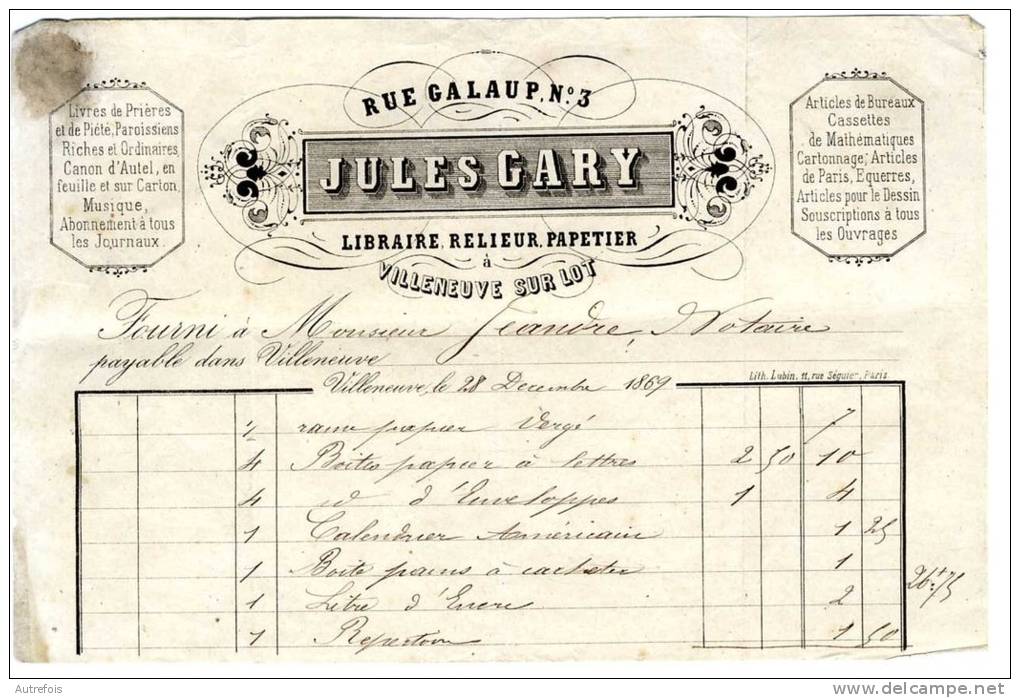 RUE GALAUP, Nº 3
JULES GARY
LIBRAIRE, RELIEUR, PAPETIER
à
VILLENEUVE SUR LOT
Livres de Prières
et de Piété, Paroissiens
Riches et Ordinaires,
Canon d'Autel, en
feuille et sur Carton,
Musique,
Abonnement à tous
les Journaux.
Articles de Bureaux
Cassettes
de Mathématiques
Cartonnage, Articles
de Paris, Equerres,
Articles pour le Dessin
Souscriptions à tous
les Ouvrages
Fourni à Monsieur Jeandre, Notaire
payable dans Villeneuve
Lith. Lubin, 11, rue Séguier, Paris
Villeneuve, le 28 Decembre 1869
½ rame papier Vergé 7
4 Boites papier à lettres 2 50 10
4 id d'Enveloppes 1 4
1 Calendrier Américain 1 25
1 Boite pains à cacheter 1
1 Litre d'Encre 2
1 Repertoire 1 50
26f.75
Autrefois
delcampe.net